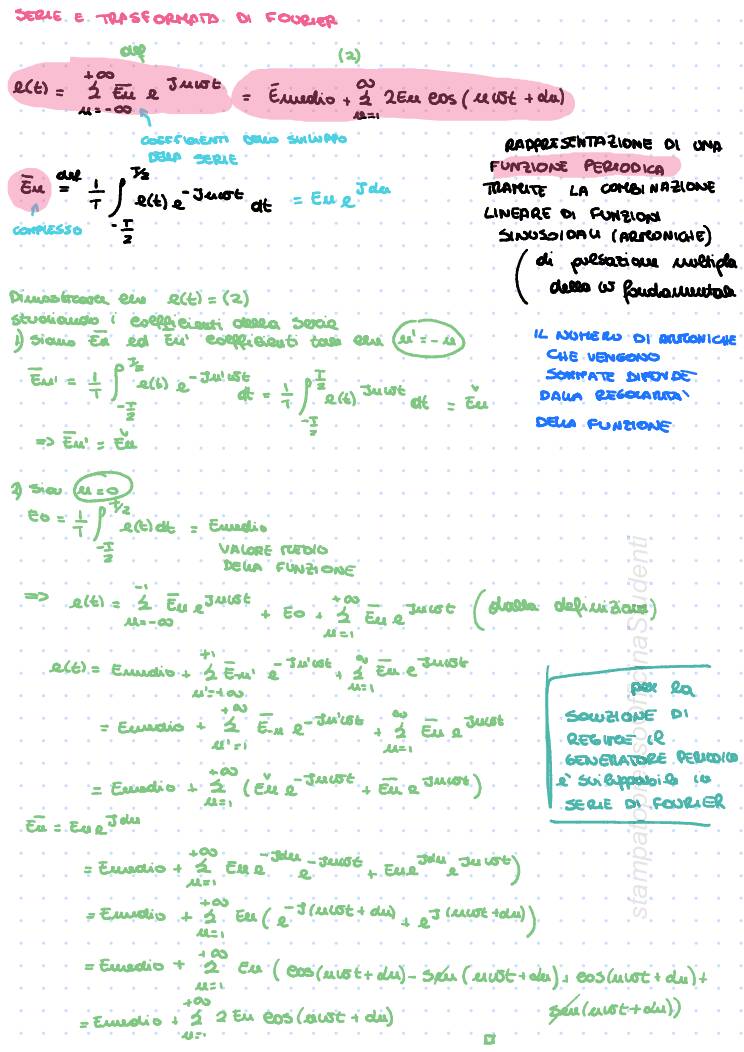 SERIE E TRASFORMATA DI FOURIER
def
(2)
e(t) = Σ_{n=-∞}^{+∞} E̅n e^{Jnωt} = Emedio + Σ_{n=1}^{∞} 2En cos(nωt + αn)
COEFFICIENTI DELLO SVILUPPO
DELLA SERIE
E̅n def= 1/T ∫_{-T/2}^{T/2} e(t) e^{-Jnωt} dt = En e^{Jαn}
COMPLESSO
RAPPRESENTAZIONE DI UNA
FUNZIONE PERIODICA
TRAMITE LA COMBINAZIONE
LINEARE DI FUNZIONI
SINUSOIDALI (ARMONICHE)
(di pulsazione multipla
della ω fondamentale
Dimostrare che e(t) = (2)
Studiando i coefficienti della serie
1) Siano E̅n ed E̅n' coefficienti tali che n' = -n
E̅n' = 1/T ∫_{-T/2}^{T/2} e(t) e^{-Jn'ωt} dt = 1/T ∫_{-T/2}^{T/2} e(t)^{Jnωt} dt = Ěn
=> E̅n' = Ěn
IL NUMERO DI ARMONICHE
CHE VENGONO
SOMMATE DIPENDE
DALLA REGOLARITA'
DELLA FUNZIONE
2) Sia n=0
E0 = 1/T ∫_{-T/2}^{T/2} e(t) dt = Emedio
VALORE MEDIO
DELLA FUNZIONE
=> e(t) = Σ_{n=-∞}^{-1} E̅n e^{Jnωt} + E0 + Σ_{n=1}^{+∞} E̅n e^{Jnωt} (dalla definizione)
e(t) = Emedio + Σ_{n'=+∞}^{+1} E̅-n' e^{-Jn'ωt} + Σ_{n=1}^{∞} E̅n e^{Jnωt}
= Emedio + Σ_{n'=1}^{+∞} E̅-n e^{-Jn'ωt} + Σ_{n=1}^{+∞} E̅n e^{Jnωt}
= Emedio + Σ_{n=1}^{+∞} (Ěn e^{-Jnωt} + E̅n e^{Jnωt})
per la
SOLUZIONE DI
REGIME il
GENERATORE PERIODICO
e' sviluppabile in
SERIE DI FOURIER
E̅n = En e^{Jαn}
= Emedio + Σ_{n=1}^{+∞} En e^{-Jαn} e^{-Jnωt} + En e^{Jαn} e^{Jnωt})
= Emedio + Σ_{n=1}^{+∞} En (e^{-J(nωt + αn)} + e^{J(nωt + αn)})
= Emedio + Σ_{n=1}^{+∞} En (cos(nωt + αn) - sen(nωt + αn) + cos(nωt + αn) +
sen(nωt + αn))
= Emedio + Σ_{n=1}^{+∞} 2En cos(nωt + αn)